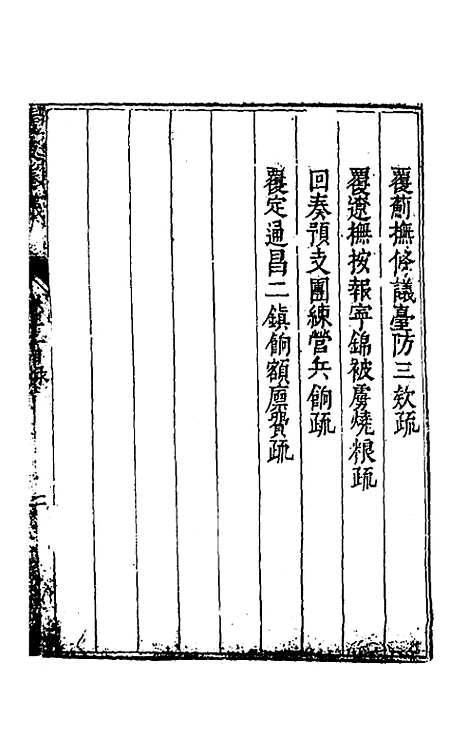 覆薊撫條議臺防三欵疏
覆遼撫按報寧錦被虜燒粮疏
回奏預支團練營兵餉疏
覆定通昌二鎮餉額廪費疏